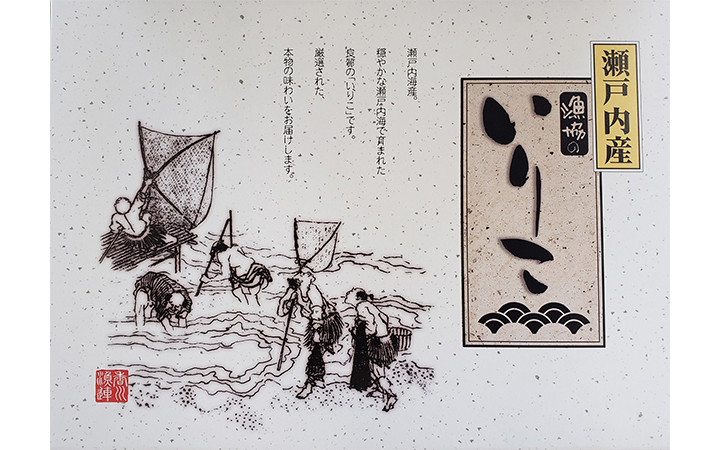 瀬戸内産
漁協の
いりこ
瀬戸内海産。
穏やかな瀬戸内海で育まれた
良質の「いりこ」です。
厳選された、
本物の味わいをお届けします。
香川
漁連